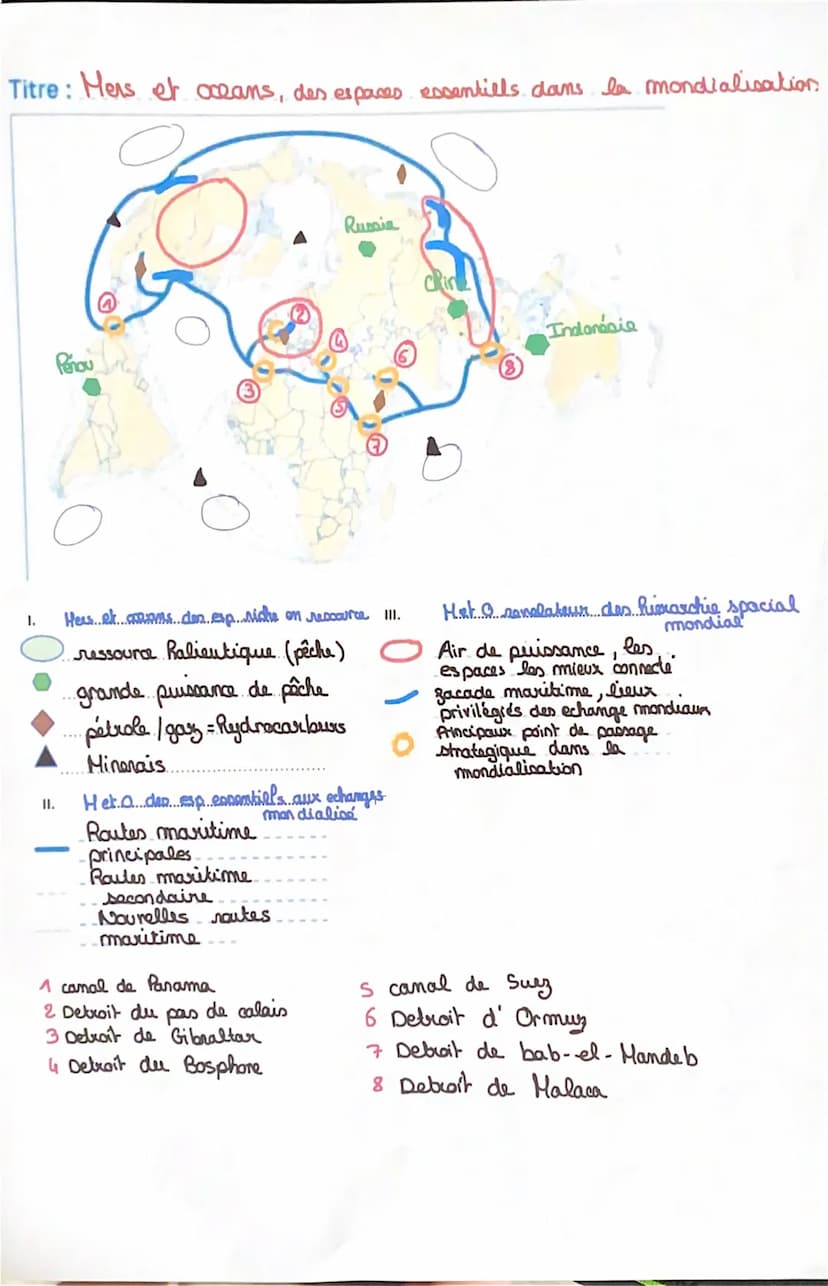 Titre : Mers et oceans, des espaces essentiels dans la mondialisation
Russie
Chine
Indonésie
Pérou
1
2
3
4
5
6
7
8
I. Mers et oceans des esp riche en ressource
ressource halieutique (pêche)
grande puissance de pêche
pétrole / gaz = hydrocarburs
Minerais
II. M et O des esp essentiels aux echanges
mondialisé
Routes maritime
principales
Routes maritime
secondaire
Nouvelles routes
maritime
III. M et O revelateur des hierarchie spacial
mondial
Air de puissance, les
espaces les mieux connecté
façade maritime, lieux
privilégiés des echange mondiaux
Principaux point de passage
strategique dans la
mondialisation
1 canal de Panama
2 Detroit du pas de calais
3 Detroit de Gibraltar
4 Detroit du Bosphore
5 canal de Suez
6 Detroit d'Ormuz
7 Detroit de bab-el-Mandeb
8 Detroit de Malaca